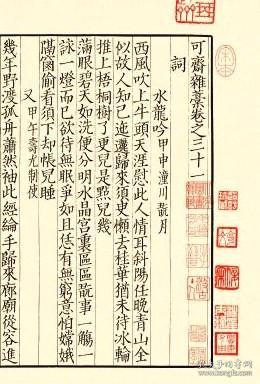 可齋雜藁卷之三十一
詞
水龍吟甲申潼川翫月
西風吹上牛頭天涯慰此人情耳斜陽任晚青山全
似故人知己迤邐歸來須臾懶去桂華猶未待水輪
推上梧桐樹了更兒是㸃兒幾
蕩眼碧天如洗便分明水晶宮裏區區翫事一觴一
詠一燈而已欲待無眠爭如且恁有無窮意怕嫦娥
隔窗偷看須下却帳兒睡
又甲午壽尤制使
幾年野渡孤舟蕭然袖此經綸手歸來廊廟從容進